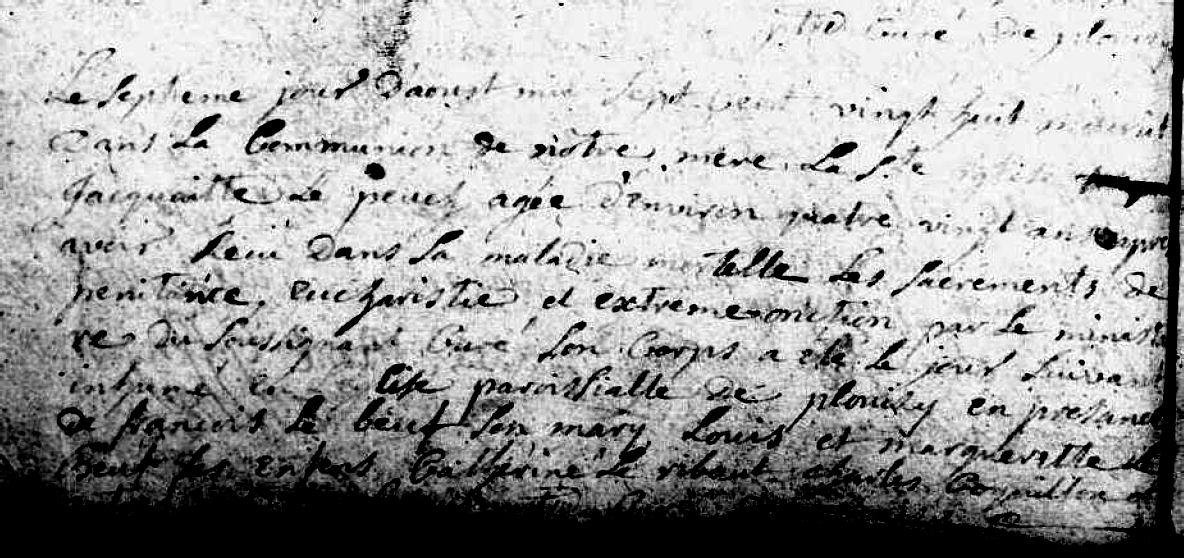 curé de
Le septieme jour d'aoust mil sept cent vingt huit mourut
dans la Communion de nôtre mere la Ste eglise
Jacquaitte Le peuch agée d'environ quatre vingt an apres
avoir Receu dans sa maladie mortelle les sacrements de
penitance, eucharistie et extreme onction par le ministe
re du soussignant Curé son Corps a eté le jour suivant
inhumé en paroissialle de plouisy en presance
de françois Le beuf son mary Louis et margueritte le
beuf ses enfens Catherine Le ribaut charles et